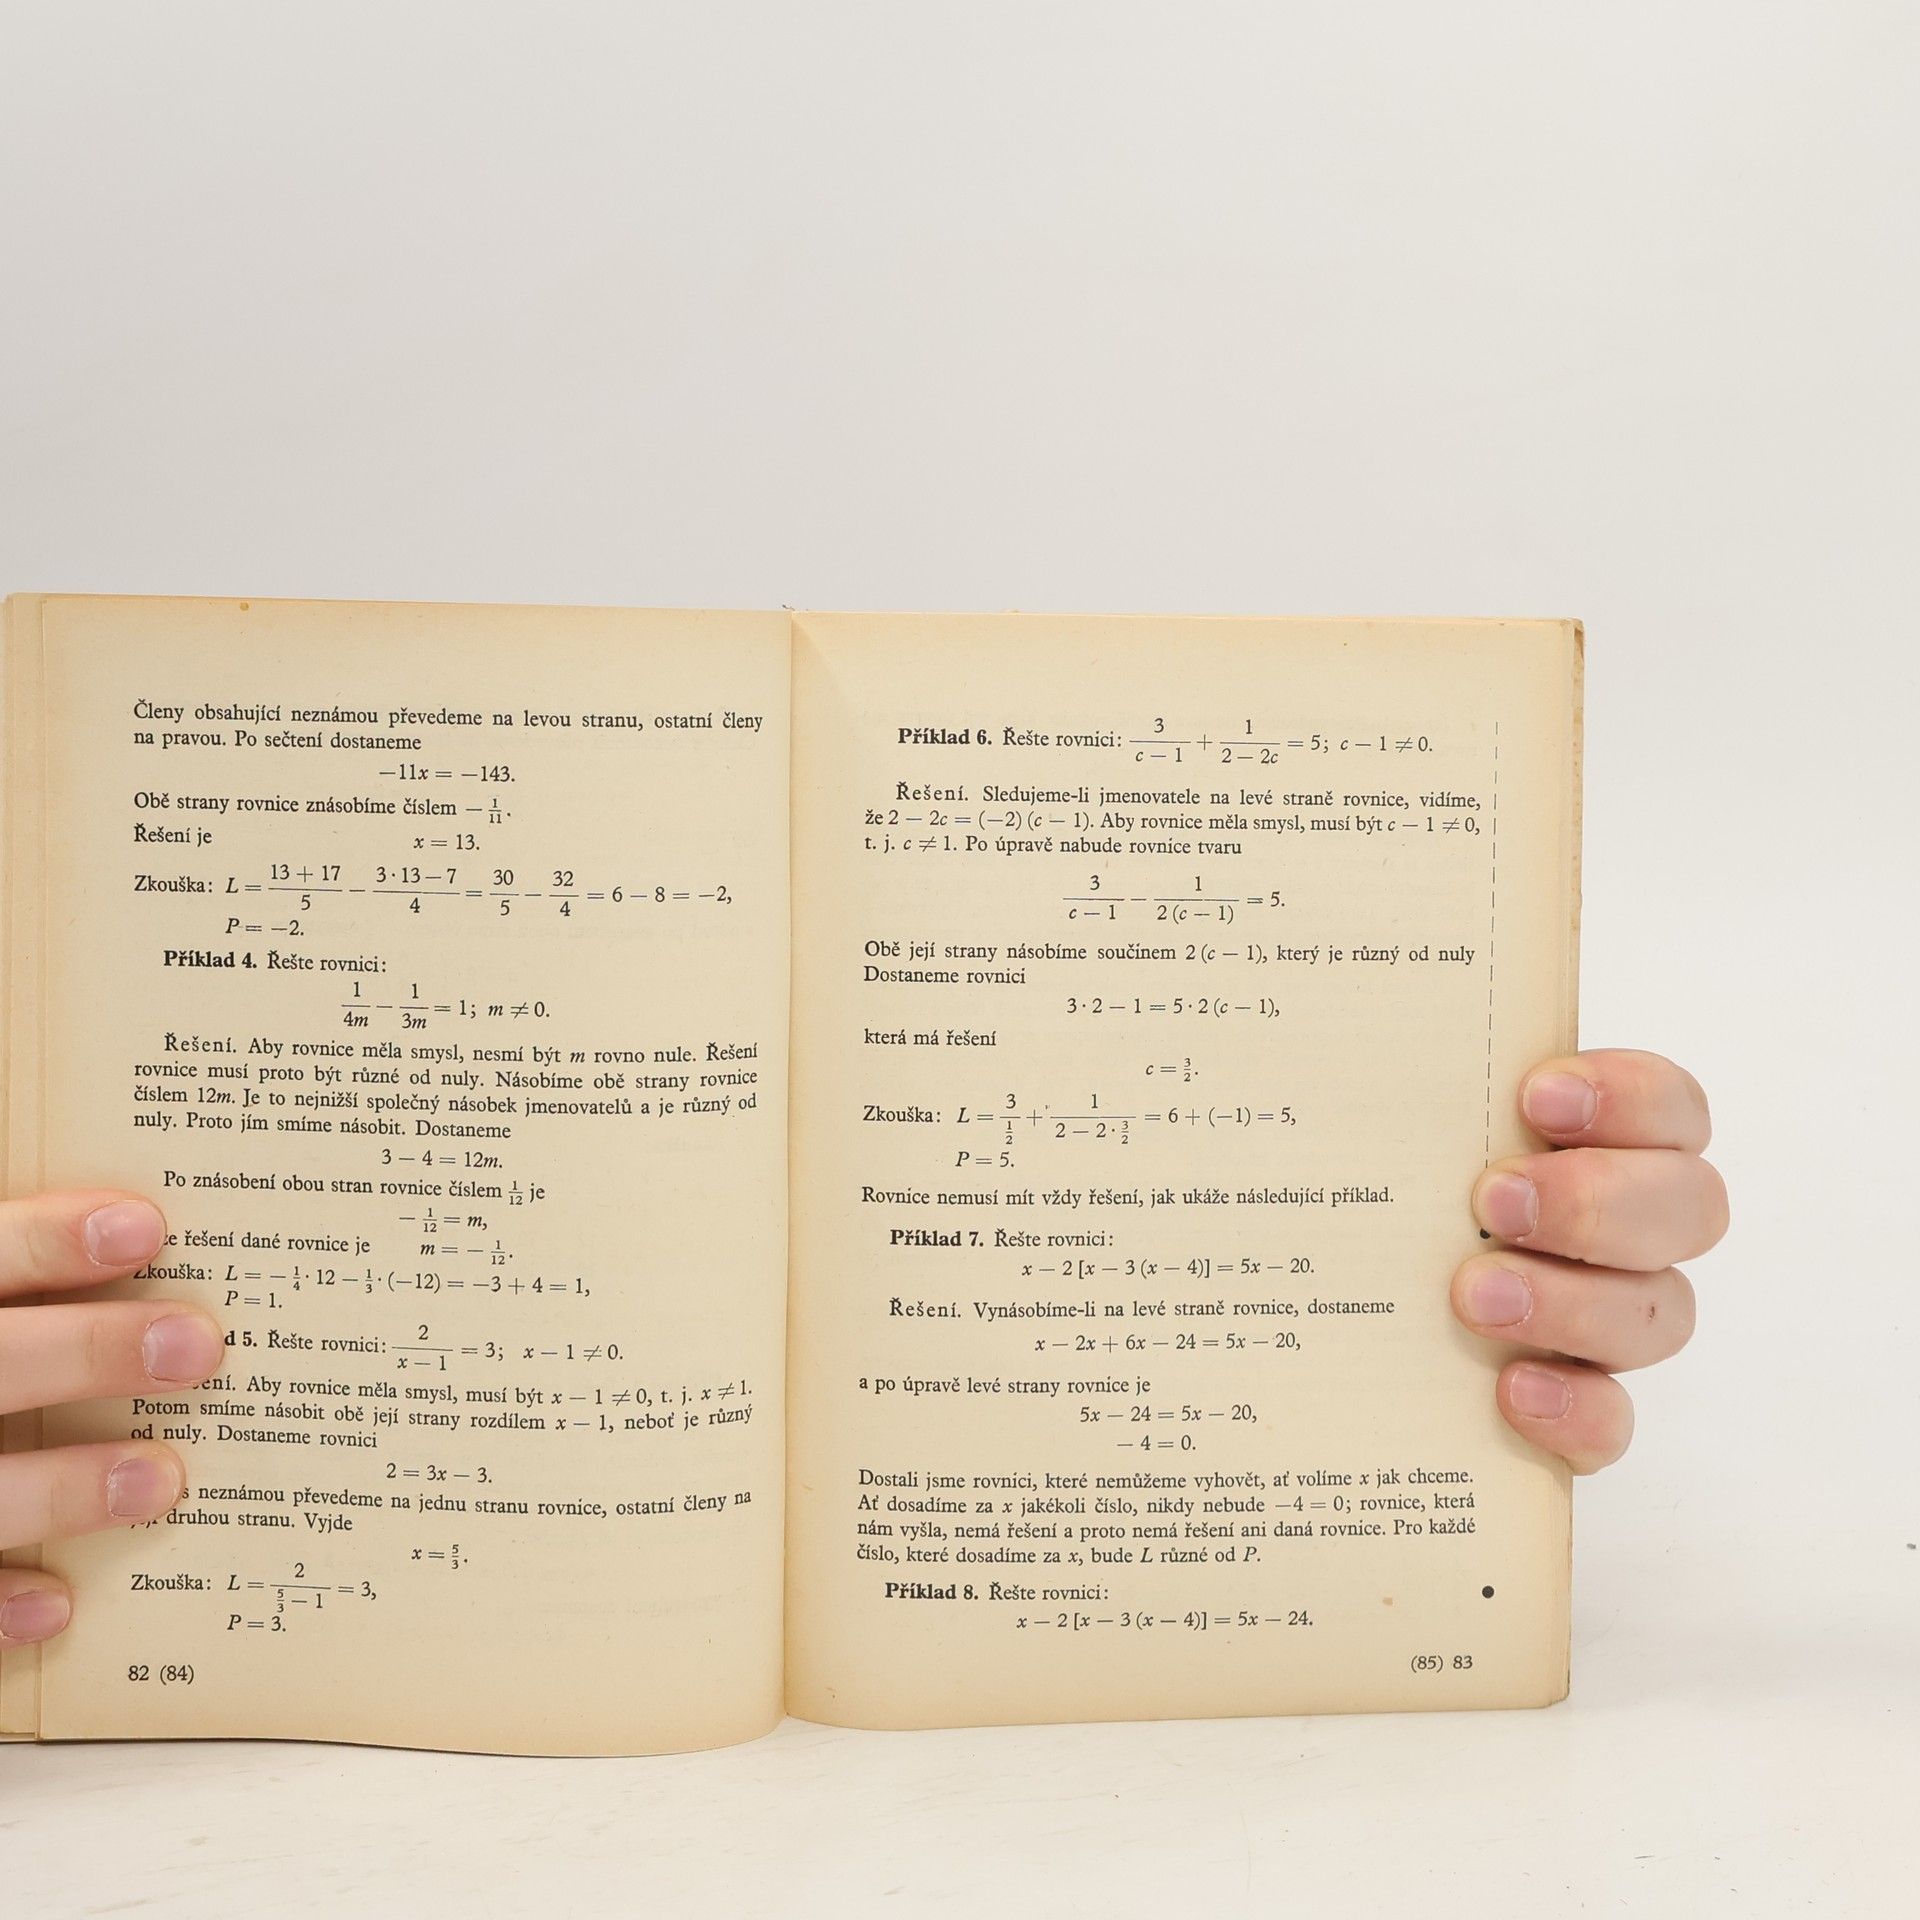 Členy obsahující neznámou převedeme na levou stranu, ostatní členy
na pravou. Po sečtení dostaneme
−11x = −143.
Obě strany rovnice znásobíme číslem − 1/11.
Řešení je x = 13.
Zkouška: L = (13 + 17)/5 − (3·13 − 7)/4 = 30/5 − 32/4 = 6 − 8 = −2,
P = −2.
Příklad 4. Řešte rovnici:
1/4m − 1/3m = 1; m ≠ 0.
Řešení. Aby rovnice měla smysl, nesmí být m rovno nule. Řešení
rovnice musí proto být různé od nuly. Násobíme obě strany rovnice
číslem 12m. Je to nejnižší společný násobek jmenovatelů a je různý od
nuly. Proto jím smíme násobit. Dostaneme
3 − 4 = 12m.
Po znásobení obou stran rovnice číslem 1/12 je
− 1/12 = m,
řešení dané rovnice je m = − 1/12.
Zkouška: L = − 1/4 · 12 − 1/3 · (−12) = −3 + 4 = 1,
P = 1.
5. Řešte rovnici: 2/(x − 1) = 3; x − 1 ≠ 0.
Aby rovnice měla smysl, musí být x − 1 ≠ 0, t. j. x ≠ 1.
Potom smíme násobit obě její strany rozdílem x − 1, neboť je různý
od nuly. Dostaneme rovnici
2 = 3x − 3.
s neznámou převedeme na jednu stranu rovnice, ostatní členy na
druhou stranu. Vyjde
x = 5/3.
Zkouška: L = 2/(5/3 − 1) = 3,
P = 3.
82 (84)
Příklad 6. Řešte rovnici: 3/(c − 1) + 1/(2 − 2c) = 5; c − 1 ≠ 0.
Řešení. Sledujeme-li jmenovatele na levé straně rovnice, vidíme,
že 2 − 2c = (−2) (c − 1). Aby rovnice měla smysl, musí být c − 1 ≠ 0,
t. j. c ≠ 1. Po úpravě nabude rovnice tvaru
3/(c − 1) − 1/(2 (c − 1)) = 5.
Obě její strany násobíme součinem 2 (c − 1), který je různý od nuly
Dostaneme rovnici
3 · 2 − 1 = 5 · 2 (c − 1),
která má řešení
c = 3/2.
Zkouška: L = 3/(1/2) + 1/(2 − 2 · 3/2) = 6 + (−1) = 5,
P = 5.
Rovnice nemusí mít vždy řešení, jak ukáže následující příklad.
Příklad 7. Řešte rovnici:
x − 2 [x − 3 (x − 4)] = 5x − 20.
Řešení. Vynásobíme-li na levé straně rovnice, dostaneme
x − 2x + 6x − 24 = 5x − 20,
a po úpravě levé strany rovnice je
5x − 24 = 5x − 20,
− 4 = 0.
Dostali jsme rovnici, které nemůžeme vyhovět, ať volíme x jak chceme.
Ať dosadíme za x jakékoli číslo, nikdy nebude −4 = 0; rovnice, která
nám vyšla, nemá řešení a proto nemá řešení ani daná rovnice. Pro každé
číslo, které dosadíme za x, bude L různé od P.
Příklad 8. Řešte rovnici:
x − 2 [x − 3 (x − 4)] = 5x − 24.
(85) 83